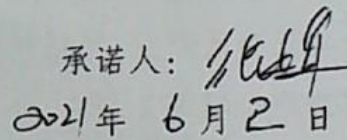 承诺人：
2021年 6月2日